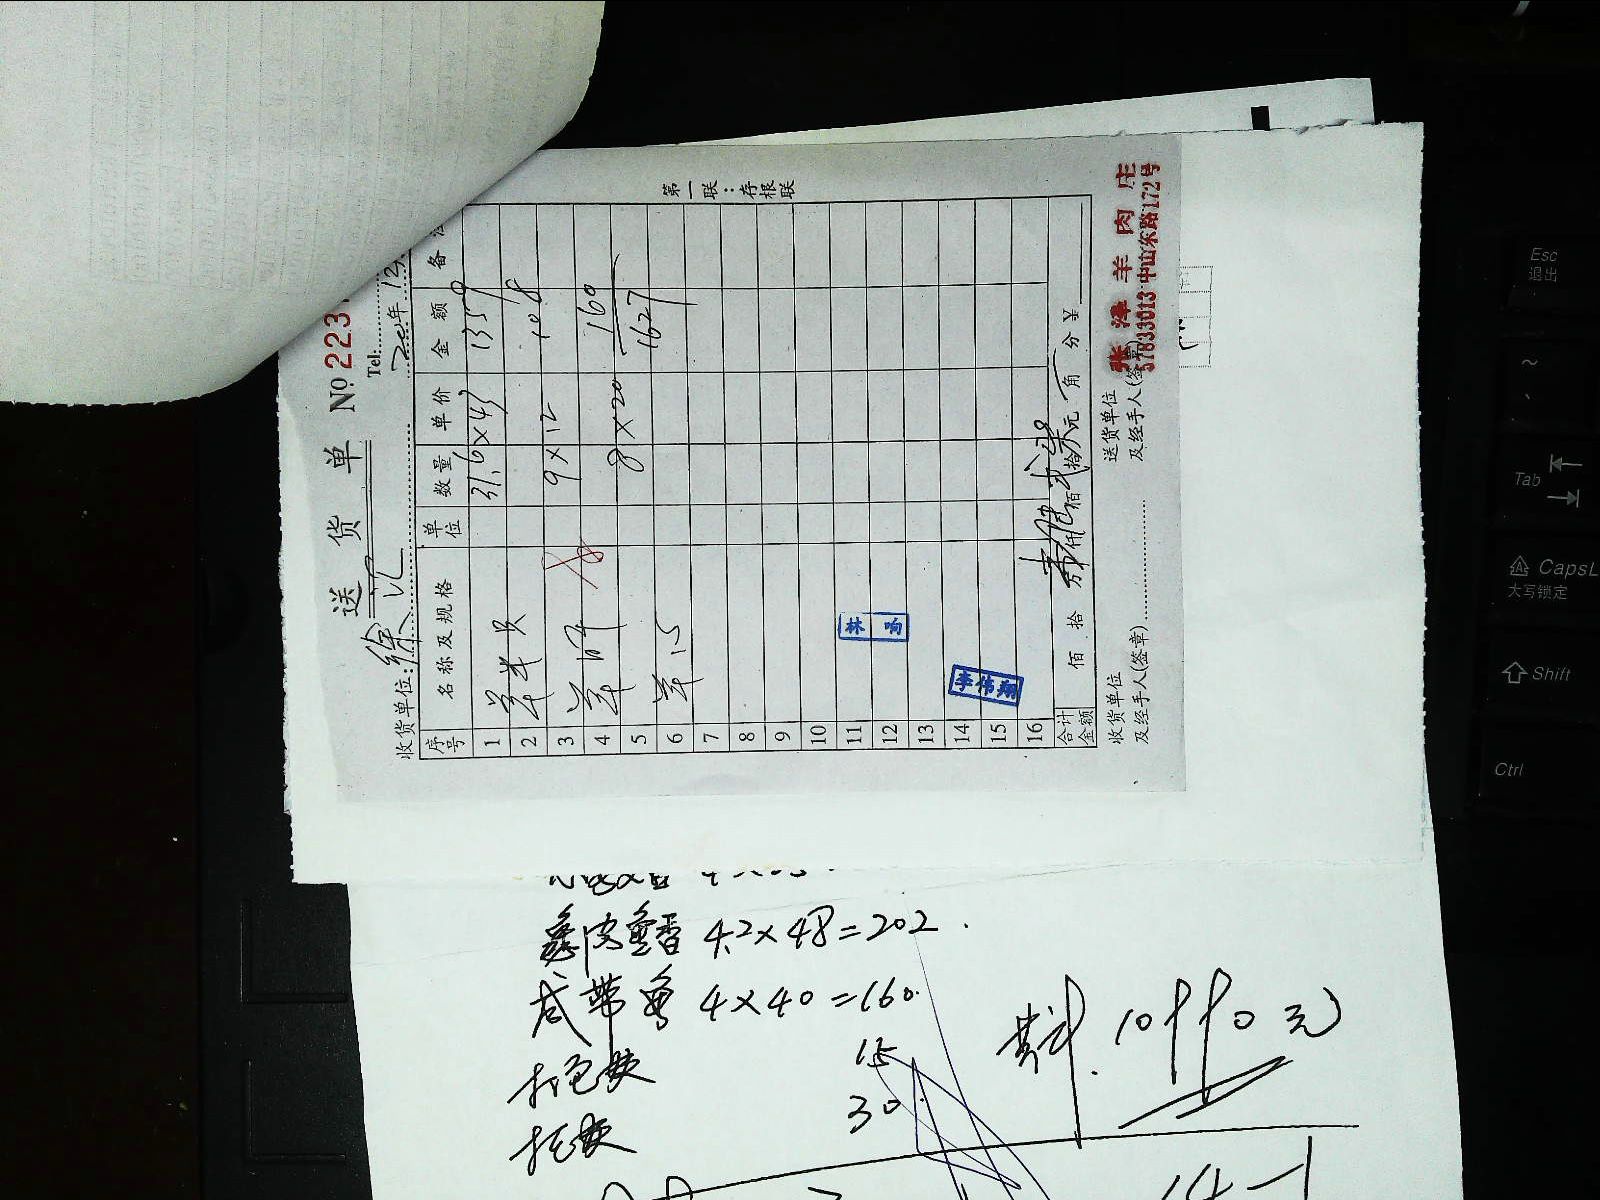 送 货 单 № 223
Tel:
收货单位:徐汇 20 年 12
序号 名称及规格 单位 数量 单价 金额 备
1 31.6×43 1359
2 羊半只
3 9×12 108
4 羊肝
5 8×20 160
6 羊 1627
7
8
9
10
11
12
13
14
15
16
林
李伟翔
第一联:存根联
合计金额 佰 拾 万壹仟陆佰贰拾柒元 角 分 ¥
收货单位及经手人(签章) 送货单位及经手人(签章)
张泽羊肉庄
57833013 中山东路172号
4.2×48=202.
咸带鱼 4×40=160.
打包费 15
30
共计.10990元
Esc 退出
Tab
CapsL 大写锁定
Shift
Ctrl